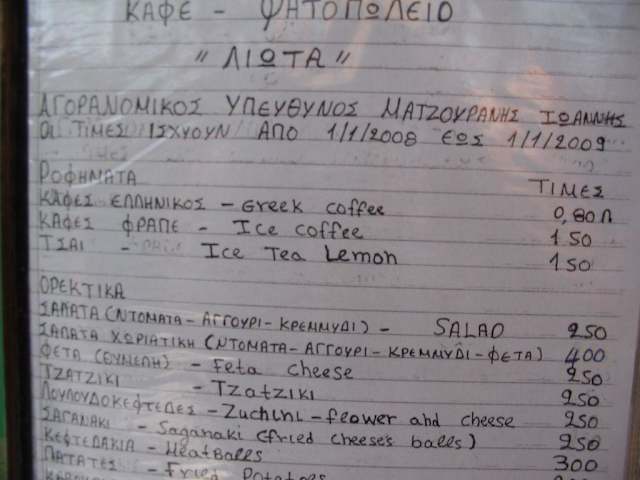 ΚΑΦΕ - ΨΗΤΟΠΩΛΕΙΟ
"ΛΙΩΤΑ"
ΑΓΟΡΑΝΟΜΙΚΟΣ ΥΠΕΥΘΥΝΟΣ ΜΑΤΖΟΥΡΑΝΗΣ ΙΩΑΝΝΗΣ
ΟΙ ΤΙΜΕΣ ΙΣΧΥΟΥΝ ΑΠΟ 1/1/2008 ΕΩΣ 1/1/2009
ΡΟΦΗΜΑΤΑ ΤΙΜΕΣ
ΚΑΦΕΣ ΕΛΛΗΝΙΚΟΣ - Greek coffee 0,80Λ
ΚΑΦΕΣ ΦΡΑΠΕ - Ice coffee 150
ΤΣΑΙ - Ice Tea Lemon 150
ΟΡΕΚΤΙΚΑ
ΣΑΛΑΤΑ (ΝΤΟΜΑΤΑ - ΑΓΓΟΥΡΙ - ΚΡΕΜΜΥΔΙ) - SALAD 250
ΣΑΛΑΤΑ ΧΩΡΙΑΤΙΚΗ (ΝΤΟΜΑΤΑ - ΑΓΓΟΥΡΙ - ΚΡΕΜΜΥΔΙ - ΦΕΤΑ) 400
ΦΕΤΑ - Feta cheese 250
ΤΖΑΤΖΙΚΙ - Tzatziki 250
ΛΟΥΛΟΥΔΟΚΕΦΤΕΔΕΣ - Zuchini - flower and cheese 250
ΣΑΓΑΝΑΚΙ - Saganaki (fried cheese's balls) 250
ΚΕΦΤΕΔΑΚΙΑ - Meatballs 300
ΠΑΤΑΤΕΣ - Fried Potatoes